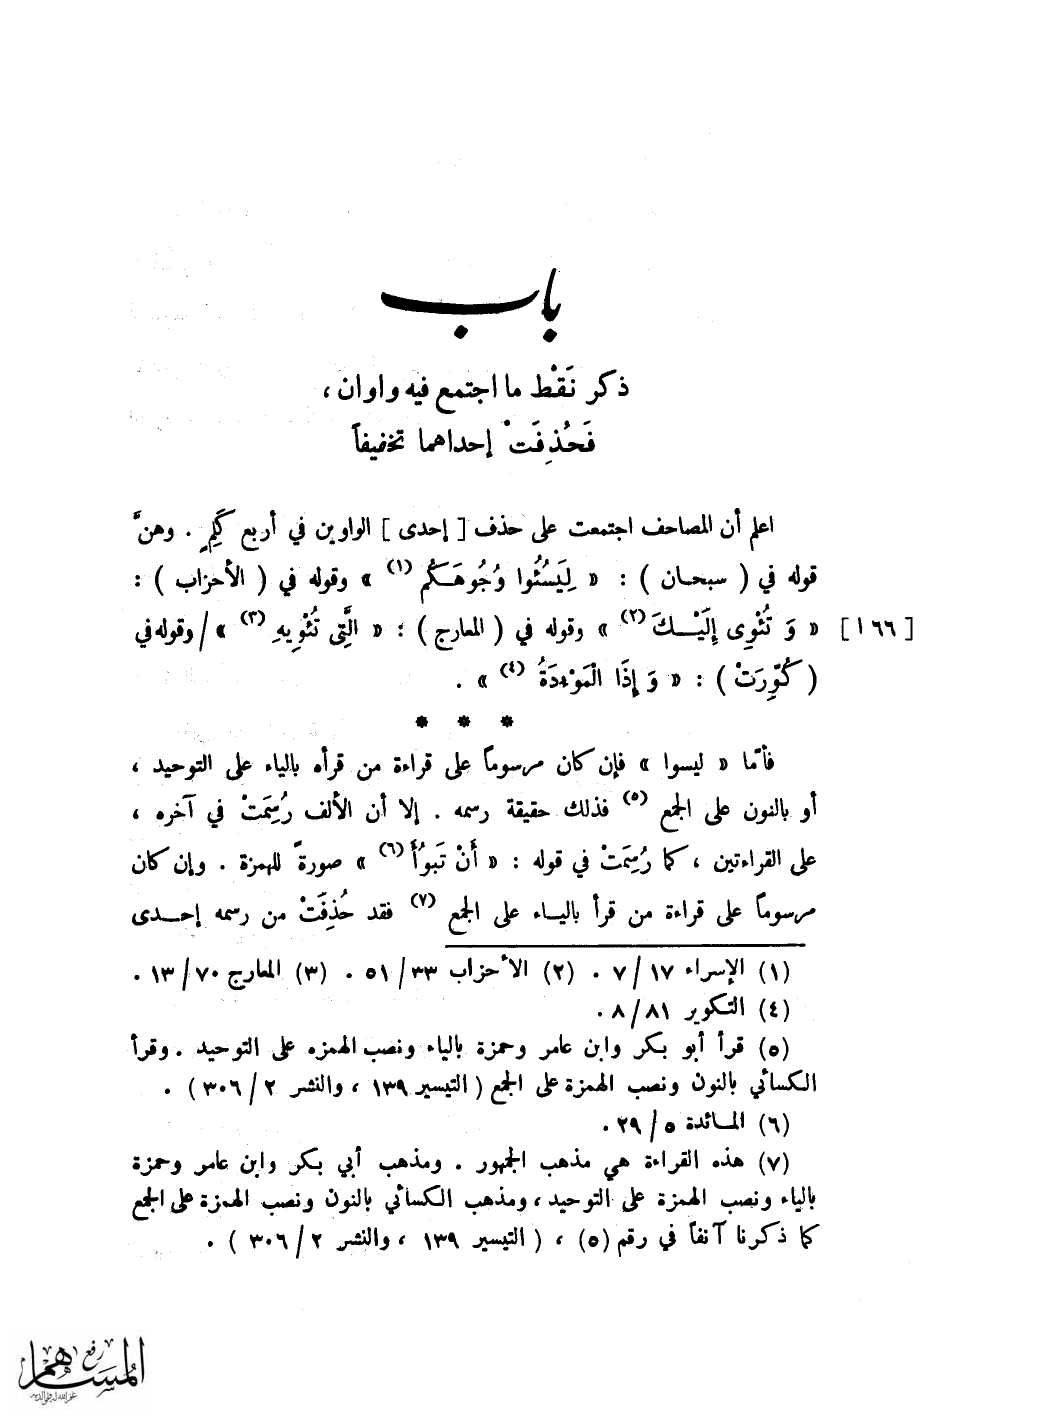 باب
ذكر نَقْط ما اجتمع فيه واوان ،
فَحُذِفَتْ إحداهما تخفيفاً
اعلم أن المصاحف اجتمعت على حذف [ إحدى ] الواوين في أربع كَلِمٍ . وهنَّ
قوله في ( سبحان ) : « لِيَسُئُوا وُجُوهَكُم (١) » وقوله في ( الأحزاب ) :
[ ١٦٦ ] « وَ تُئْوِى إِلَيْـكَ (٢) » وقوله في ( المعارج ) : « الَّتِى تُئْوِيهِ (٣) » / وقوله في
( كُوِّرَتْ ) : « وَ إِذَا الْمَوْءدَةُ (٤) » .
* * *
فأمّا « ليسوا » فإن كان مرسوماً على قراءة من قرأه بالياء على التوحيد ،
أو بالنون على الجمع (٥) فذلك حقيقة رسمه . إلا أن الألف رُسِمَتْ في آخره ،
على القراءتين ، كما رُسِمَتْ في قوله : « أَنْ تَبوُأَ (٦) » صورةً للهمزة . وإن كان
مرسوماً على قراءة من قرأ بالياء على الجمع (٧) فقد حُذِفَتْ من رسمه إحـدى
(١) الإسراء ١٧ / ٧ . (٢) الأحزاب ٣٣ / ٥١ . (٣) المعارج ٧٠ / ١٣ .
(٤) التكوير ٨١ / ٨ .
(٥) قرأ أبو بكر وابن عامر وحمزة بالياء ونصب الهمزه على التوحيد . وقرأ
الكسائي بالنون ونصب الهمزة على الجمع ( التيسير ١٣٩ ، والنشر ٢ / ٣٠٦ ) .
(٦) المائدة ٥ / ٢٩ .
(٧) هذه القراءة هي مذهب الجمهور . ومذهب أبي بكر وابن عامر وحمزة
بالياء ونصب الهمزة على التوحيد ، ومذهب الكسائي بالنون ونصب الهمزة على الجمع
كما ذكرنا آنفاً في رقم (٥) ، ( التيسير ١٣٩ ، والنشر ٢ / ٣٠٦ ) .
رفع
المساهم
غفر الله له ولوالديه